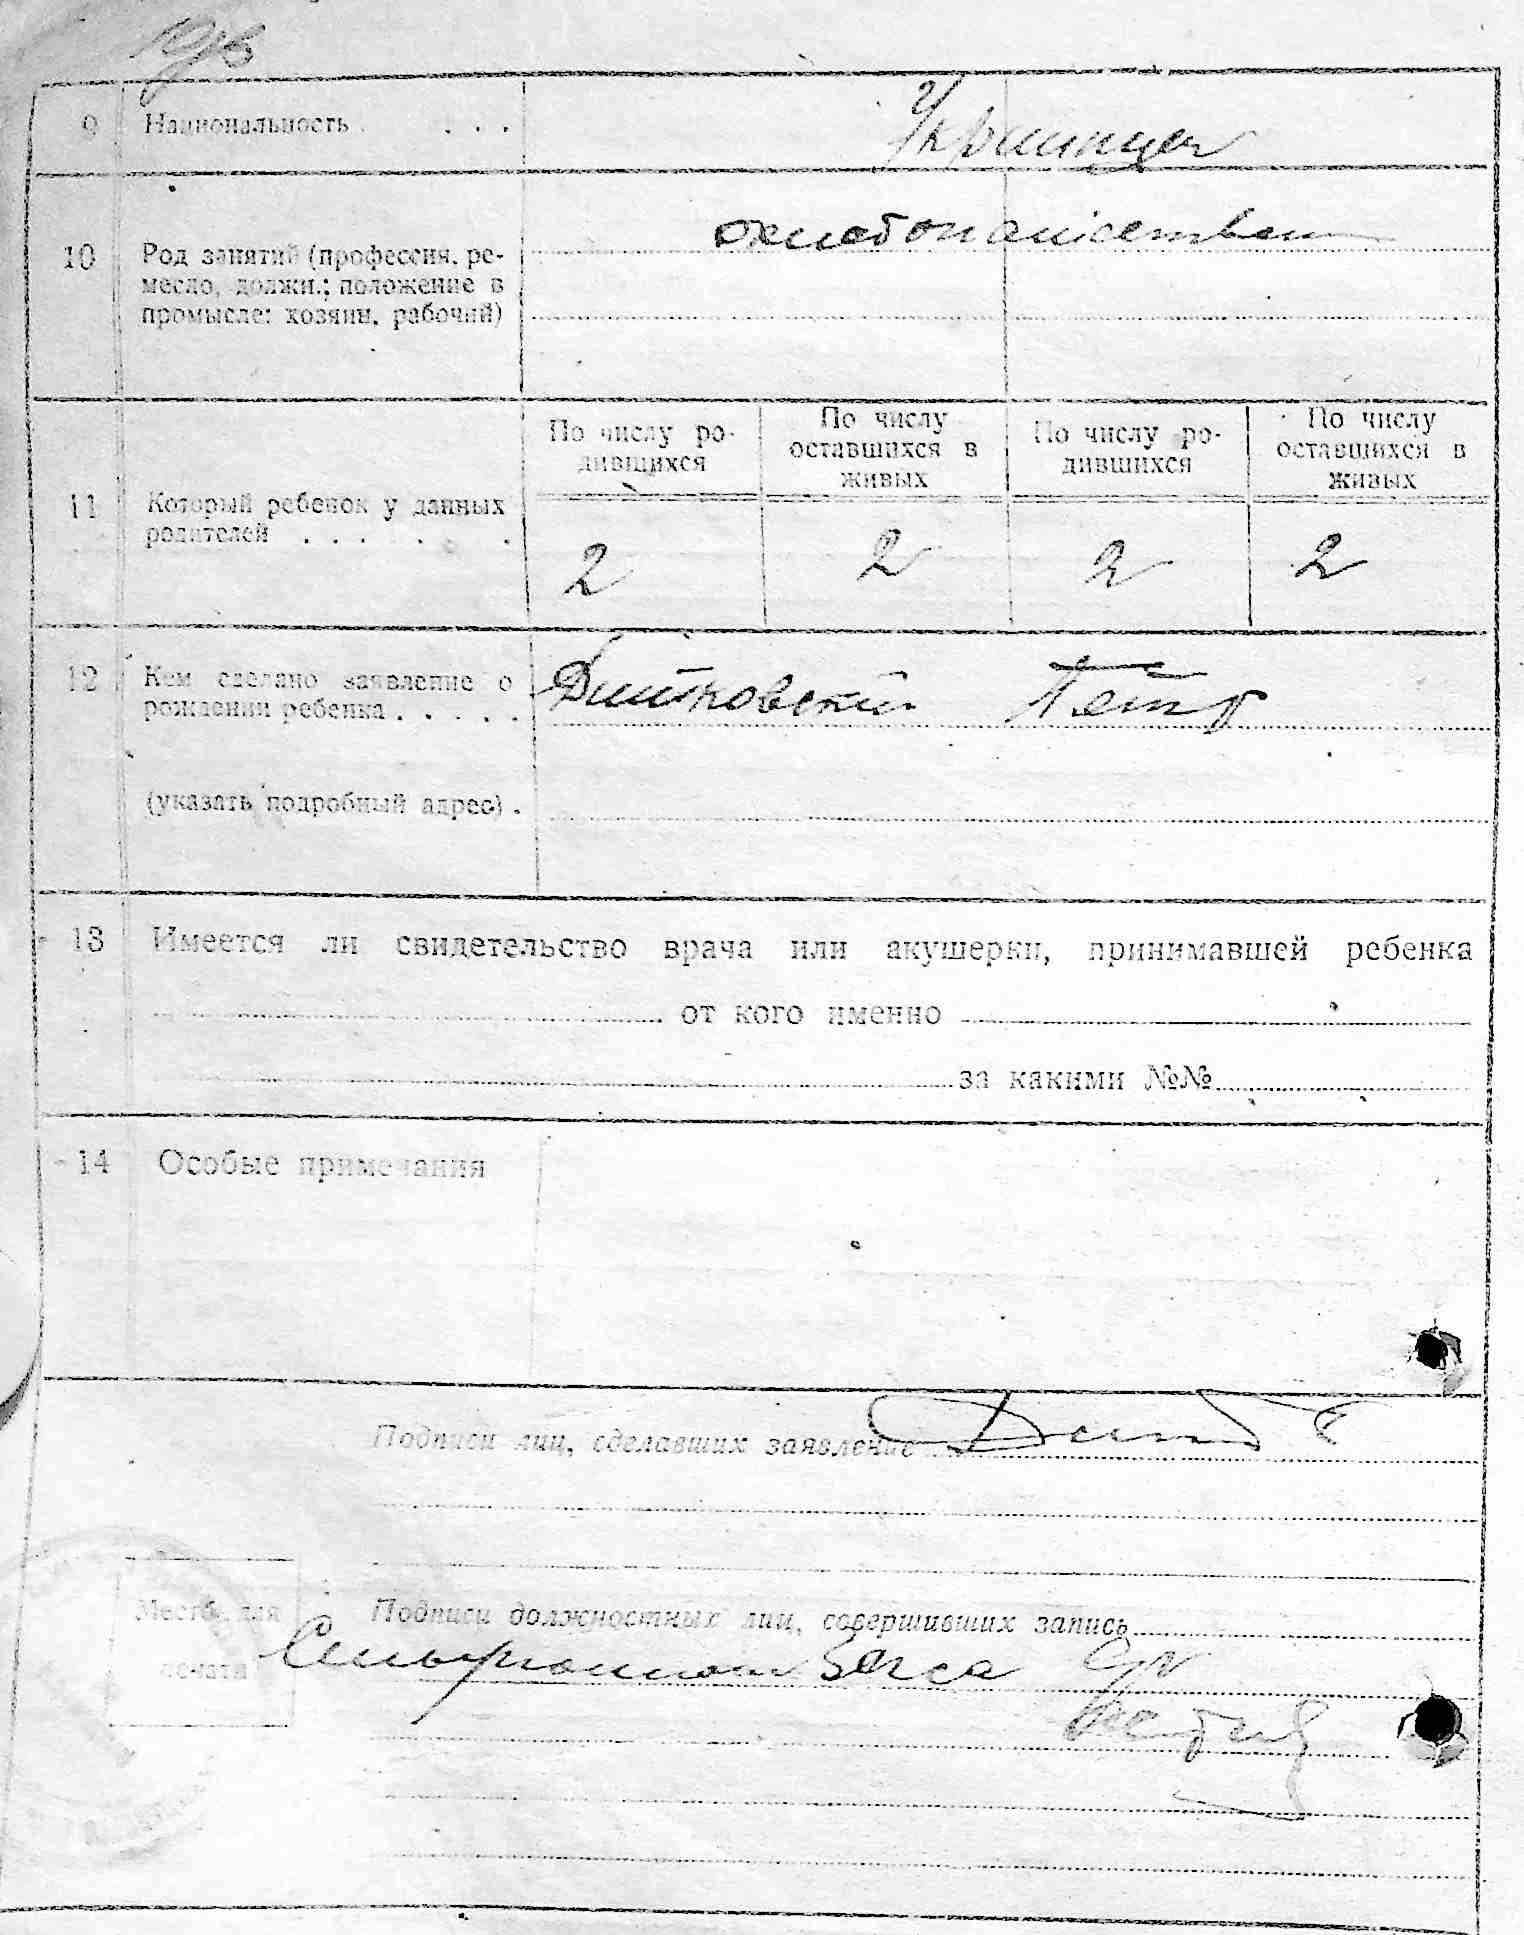 9 Национальность . . . .
Украинцы
10 Род занятий (профессия, ре-
месло, должн.; положение в
промысле: хозяин, рабочий)
По числу ро-
дившихся
По числу
оставшихся в
живых
По числу ро-
дившихся
По числу
оставшихся в
живых
11 Который ребенок у данных
родителей . . . . . .
2 2 2 2
12 Кем сделано заявление о
рождении ребенка . . . . .
Петр
(указать подробный адрес) .
13 Имеется ли свидетельство врача или акушерки, принимавшей ребенка
от кого именно
за какими №№
14 Особые примечания
Подписи лиц, сделавших заявление
Место для
печати
Подписи должностных лиц, совершивших запись
Загса